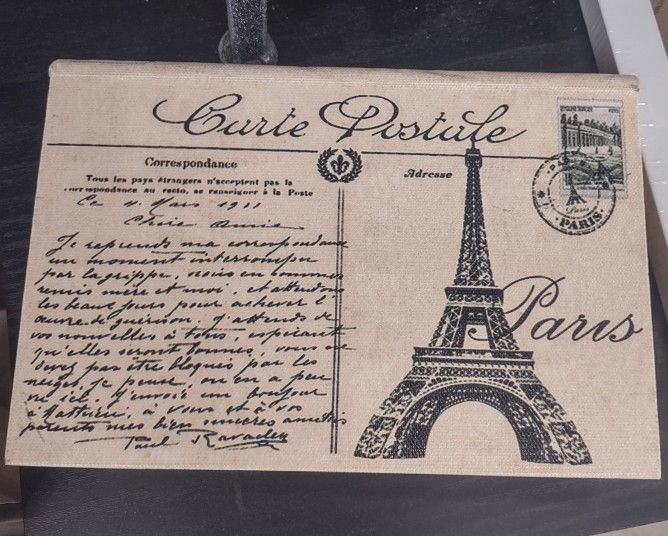 Carte Postale
Correspondance
Tous les pays étrangers n'acceptent pas la
correspondance au recto, se renseigner à la Poste
Adresse
PARIS
Paris
Ce 4 Mars 1911
Chère Amie
Je reprends ma correspondance
un moment interrompu
par la grippe, nous en sommes
remis mère et moi, et attendons
les beaux jours pour achever l'
œuvre de guérison, j'attends de
vos nouvelles à tous, espérant
qu'elles seront bonnes, vous ne
devez pas être bloqués par les
neiges, je pense, on en a peu
vu ici. J'envoie un bonjour
à Mathieu, à vous et à vos
parents mes bien sincères amitiés
Paul
Paris